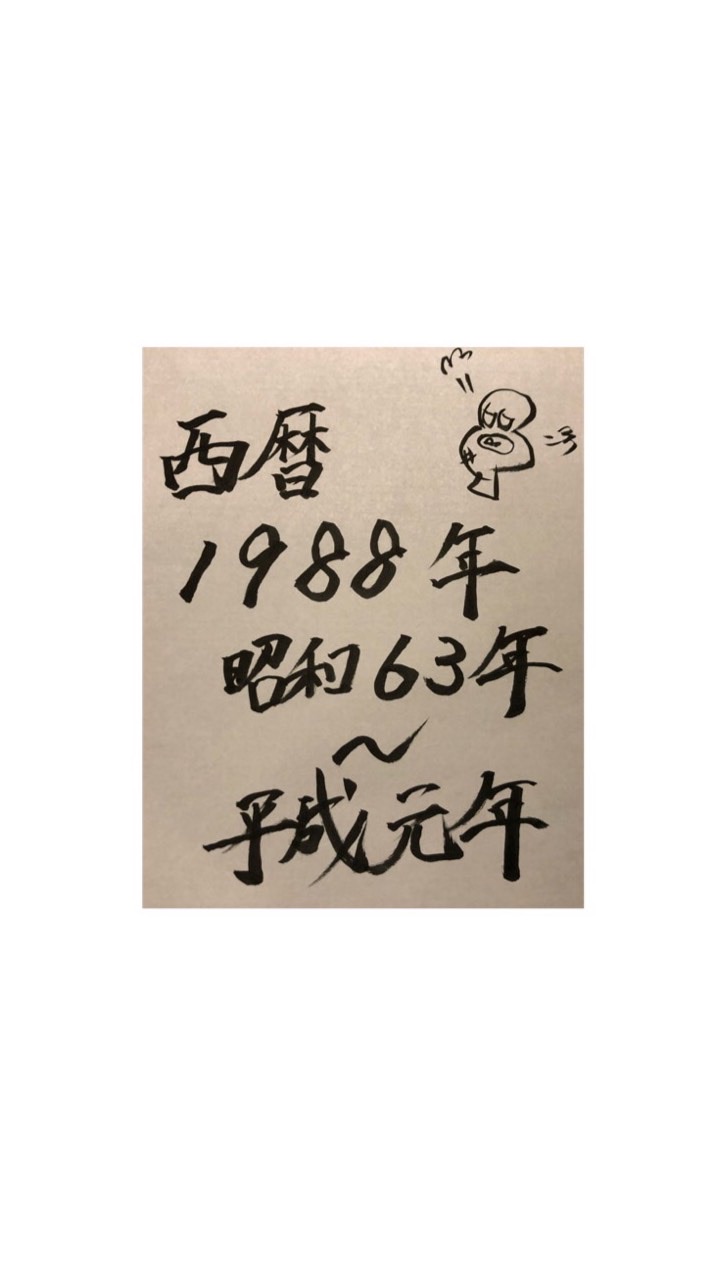 西暦
1988年
昭和63年
〜
平成元年